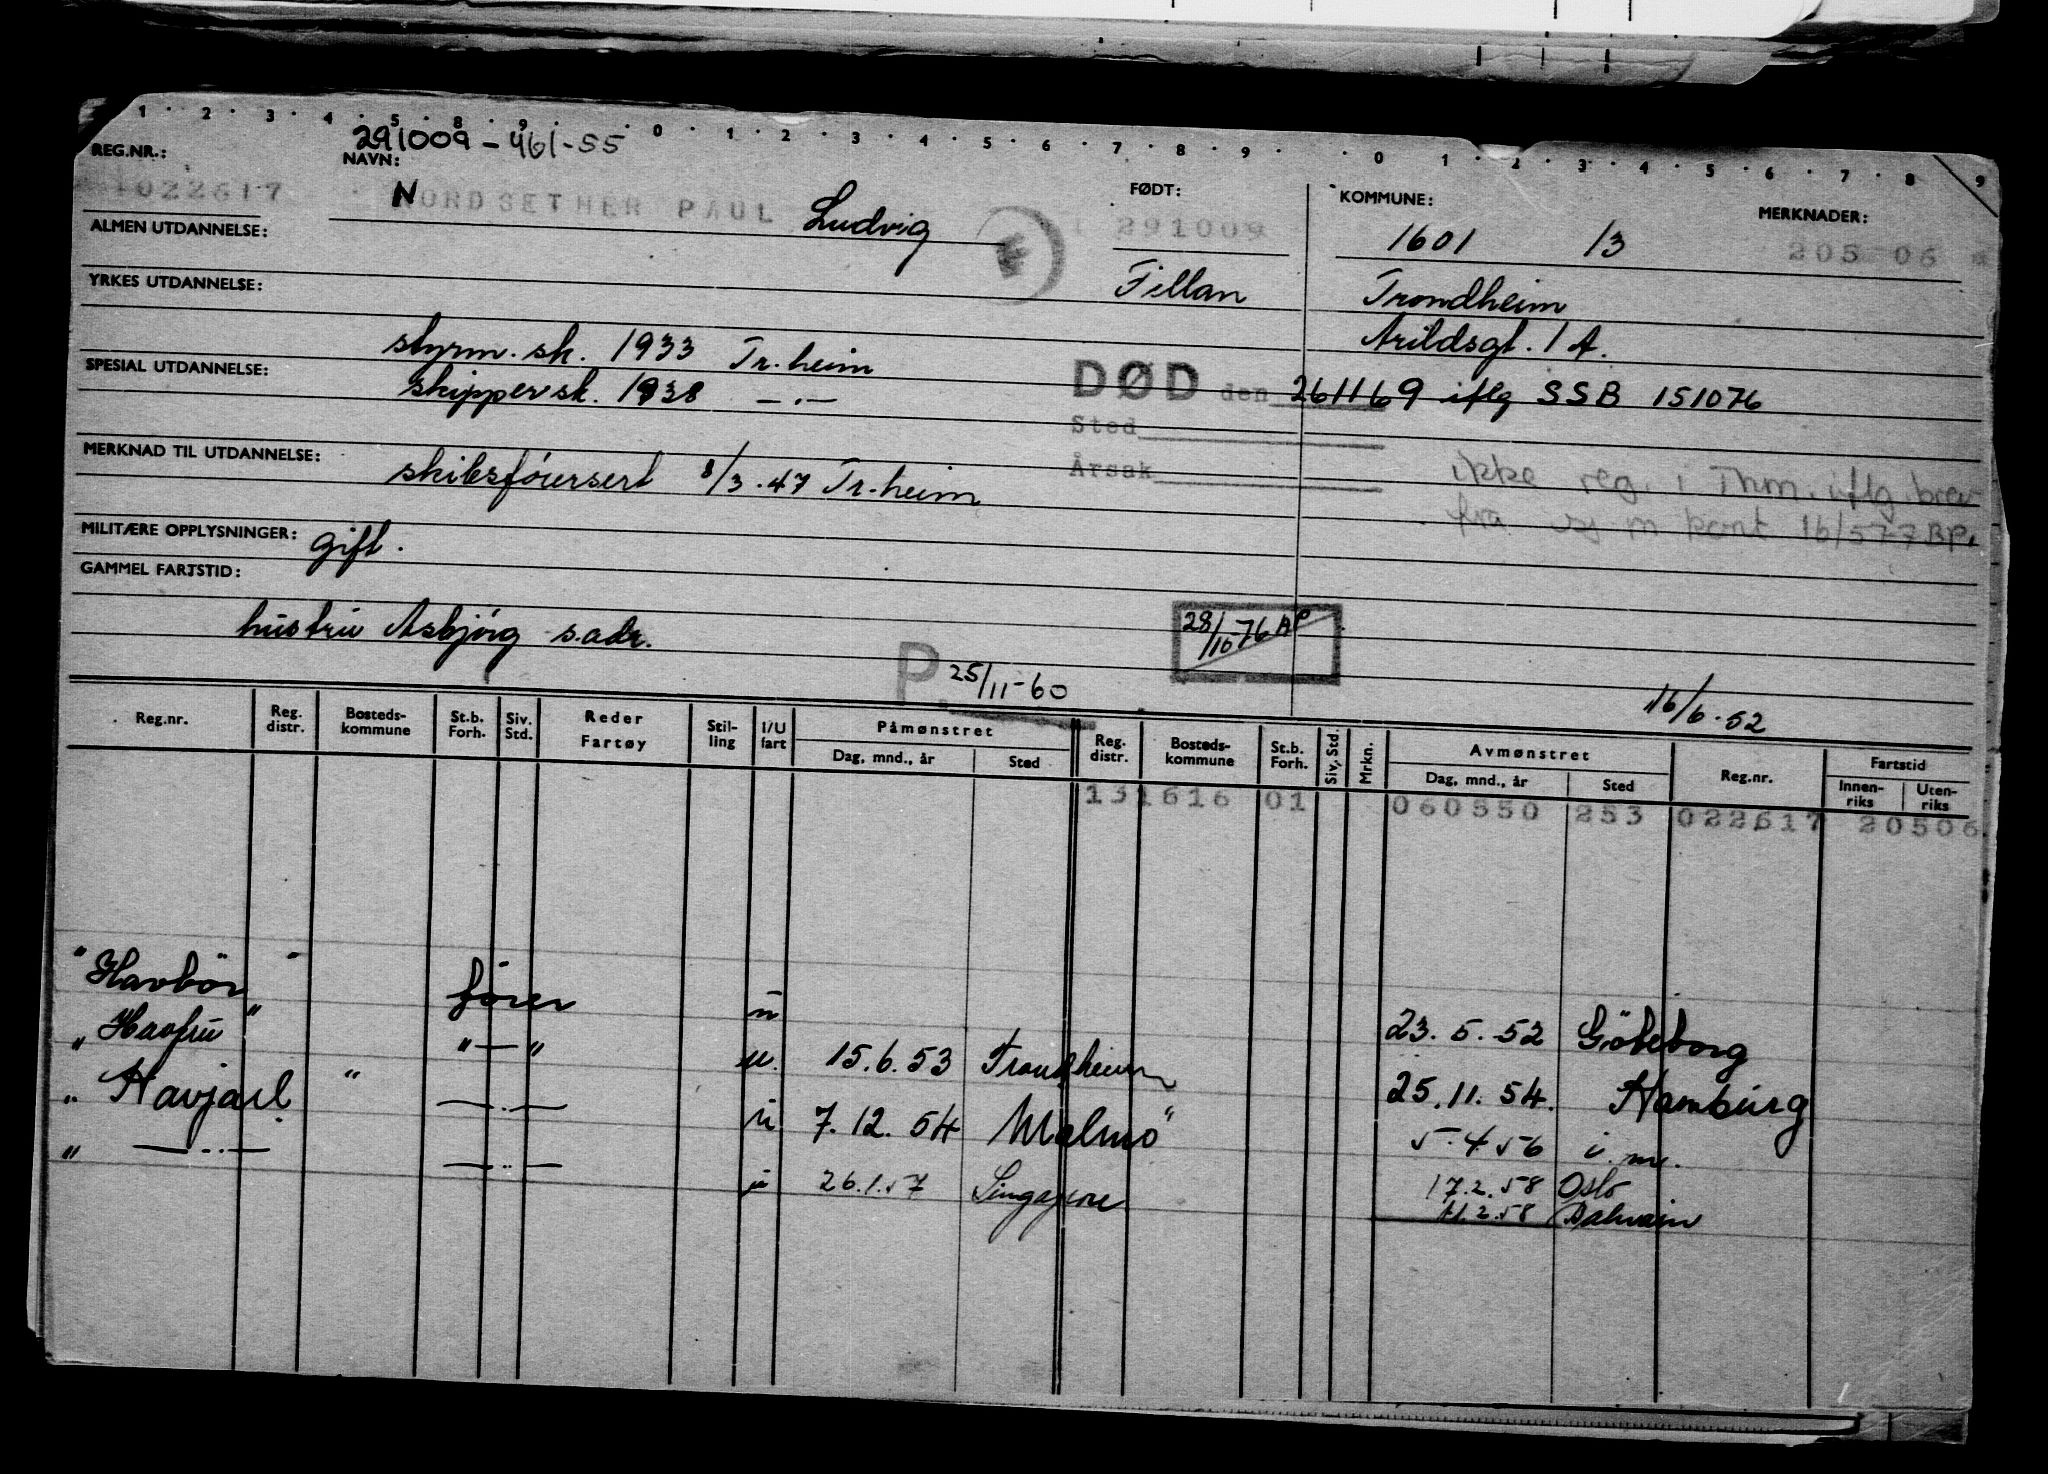 1 · 2 · 3 · 4 · 5 · 8 · 9 · 0 · 1 · 2 · 3 · 4 · 5 · 6 · 7 · 8 · 9 · 0 1 · 2 · 3 · 4 · 5 · 6 · 7 · 8 · 9
291009-461-55
REG.NR.: NAVN: FØDT: KOMMUNE: MERKNADER:
1022617 NORDSETHER PAUL Ludvig 291009 1601 13 205 06
ALMEN UTDANNELSE:
Fillan Trondheim
YRKES UTDANNELSE:
Arildsgt. 1 A.
styrm. sk. 1933 Tr. heim
SPESIAL UTDANNELSE:
skippersk. 1938 —·—
DØD den 261169 iflg SSB 151076
Sted
MERKNAD TIL UTDANNELSE: skibsförersert 8/3.47 Tr.heim
Årsak
ikke reg. i Thm. iflg. brev
fra m kont 16/577 BP.
MILITÆRE OPPLYSNINGER: gift.
GAMMEL FARTSTID:
hustru Asbjörg s.adr.
28/10-76 BP
P. 25/11-60
16/6.52
Reg.nr. Reg. distr. Bosteds-kommune St.b. Forh. Siv. Std. Reder Fartøy Stil-ling I/U fart Påmønstret Dag, mnd., år Sted Reg. distr. Bosteds-kommune St.b. Forh. Siv. Std. Mrkn. Avmønstret Dag, mnd., år Sted Reg.nr. Fartstid Innen-riks Uten-riks
131616 01 060550 253 022617 20506
"Havbör" förer u 23.5.52 Göteborg
"Havfru" "—" u. 15.6.53 Trondheim 25.11.54. Hamburg
"Havjarl" —·— u. 7.12.54 Malmö 5.4.56 i.m.
" —··— —··— u 26.1.57 Singapore 17.2.58 Oslo
11.2.58 Bahrain